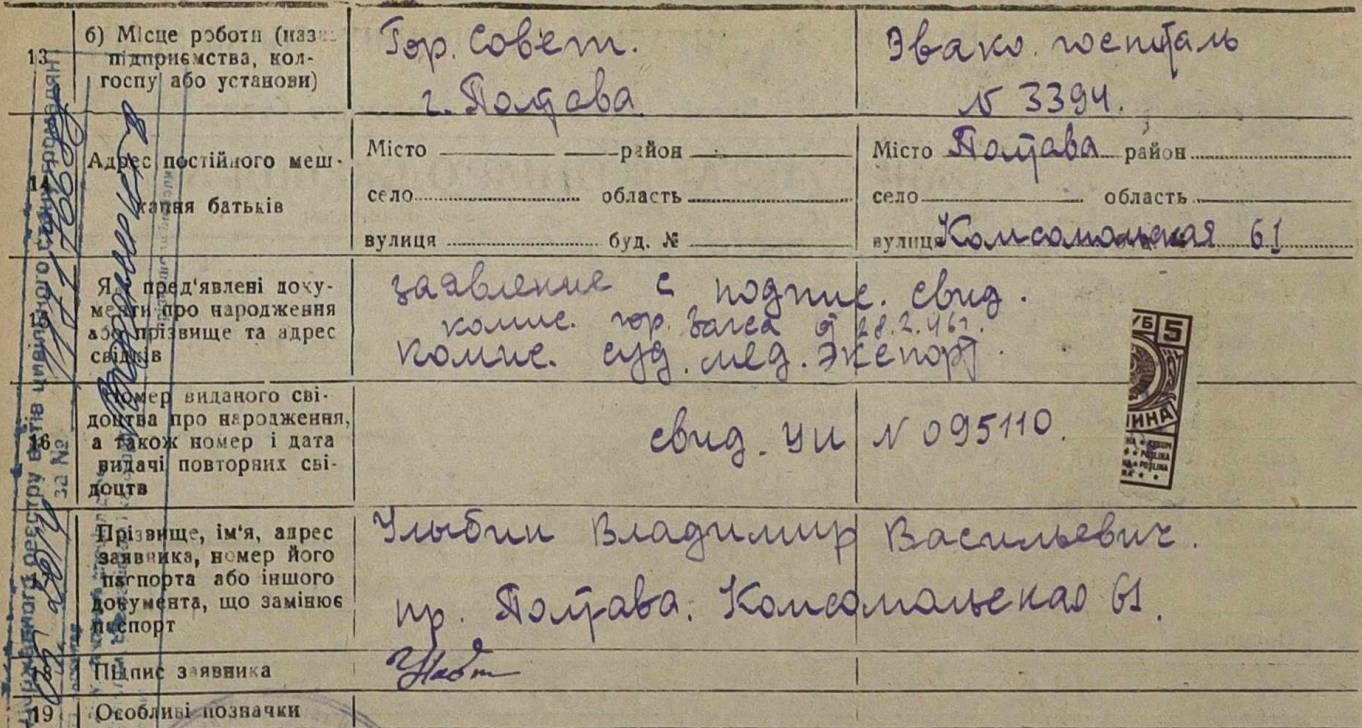 13
б) Місце роботи (назв
підприємства, кол-
госпу або установи)
Гор. Совет.
г. Полтава
Эвако. госпиталь
N 3394.
14
Адрес постійного меш-
кання батьків
Місто район
село область
вулиця буд. №
Місто Полтава район
село область
вулиця Комсомольская 61
15
Які пред'явлені доку-
менти про народження
або прізвище та адрес
свідків
заявление с подпис. свид.
комис. гор. Загса от 28.2.46г.
комис. суд. мед. Экспорт.
16
Номер виданого сві-
доцтва про народження,
а також номер і дата
видачі повторних сві-
доцтв
свид. УИ N 095110.
УБ 5
Прізвище, ім'я, адрес
заявника, номер його
паспорта або іншого
документа, що замінює
паспорт
Улыбин Владимир Васильевич.
пр. Полтава. Комсомольская 61.
18
Підпис заявника
19
Особливі позначки
Державного реєстру актів цивільного стану громадян
за №